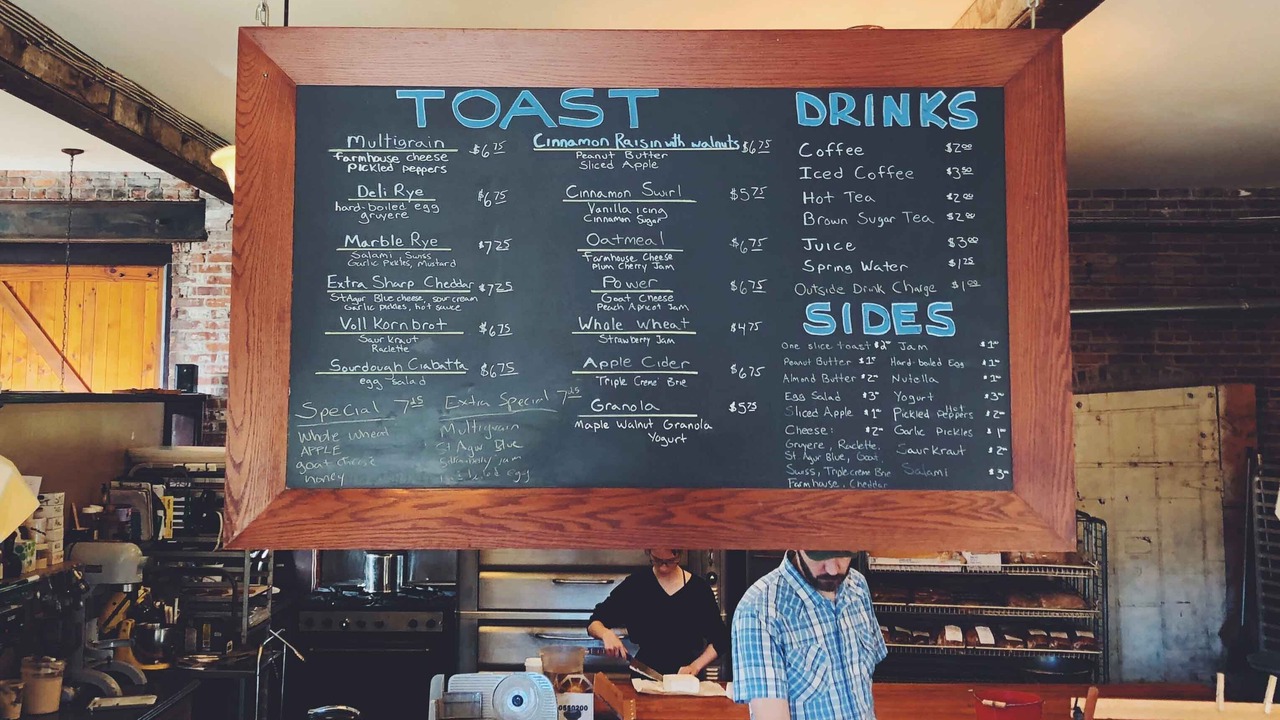 TOAST
Multigrain $6.75
farmhouse cheese
pickled peppers
Deli Rye $6.75
hard-boiled egg
gruyere
Marble Rye $7.25
Salami Swiss
Garlic Pickles, Mustard
Extra Sharp Cheddar $7.25
St Agur Blue cheese, sour cream
Garlic pickles, hot sauce
Voll Kornbrot $6.75
Saur Kraut
Raclette
Sourdough Ciabatta $6.75
egg salad
Special
Whole Wheat
APPLE
goat cheese
honey
Extra Special
Multigrain
St Agur Blue
egg
Cinnamon Raisin with walnuts $6.75
Peanut Butter
Sliced Apple
Cinnamon Swirl $5.75
Vanilla icing
Cinnamon Sugar
Oatmeal $6.75
Farmhouse Cheese
Plum Cherry Jam
Power $6.75
Goat Cheese
Peach Apricot Jam
Whole Wheat $4.75
Strawberry Jam
Apple Cider $6.75
Triple Creme Brie
Granola $5.25
Maple Walnut Granola
Yogurt
DRINKS
Coffee $2.00
Iced Coffee $3.50
Hot Tea $2.00
Brown Sugar Tea $2.00
Juice $3.00
Spring Water $1.25
Outside Drink Charge $1.00
SIDES
One slice toast $2
Peanut Butter $1
Almond Butter $2
Egg Salad $3
Sliced Apple $1
Cheese: $2
Gruyere, Raclette,
St Agur Blue, Goat,
Swiss, Triple creme Brie
Farmhouse, Cheddar
Jam $1
Hard-boiled Egg $1
Nutella $1
Yogurt $3
Pickled Hot Peppers $2
Garlic Pickles $1
Saurkraut $2
Salami $3
0550200